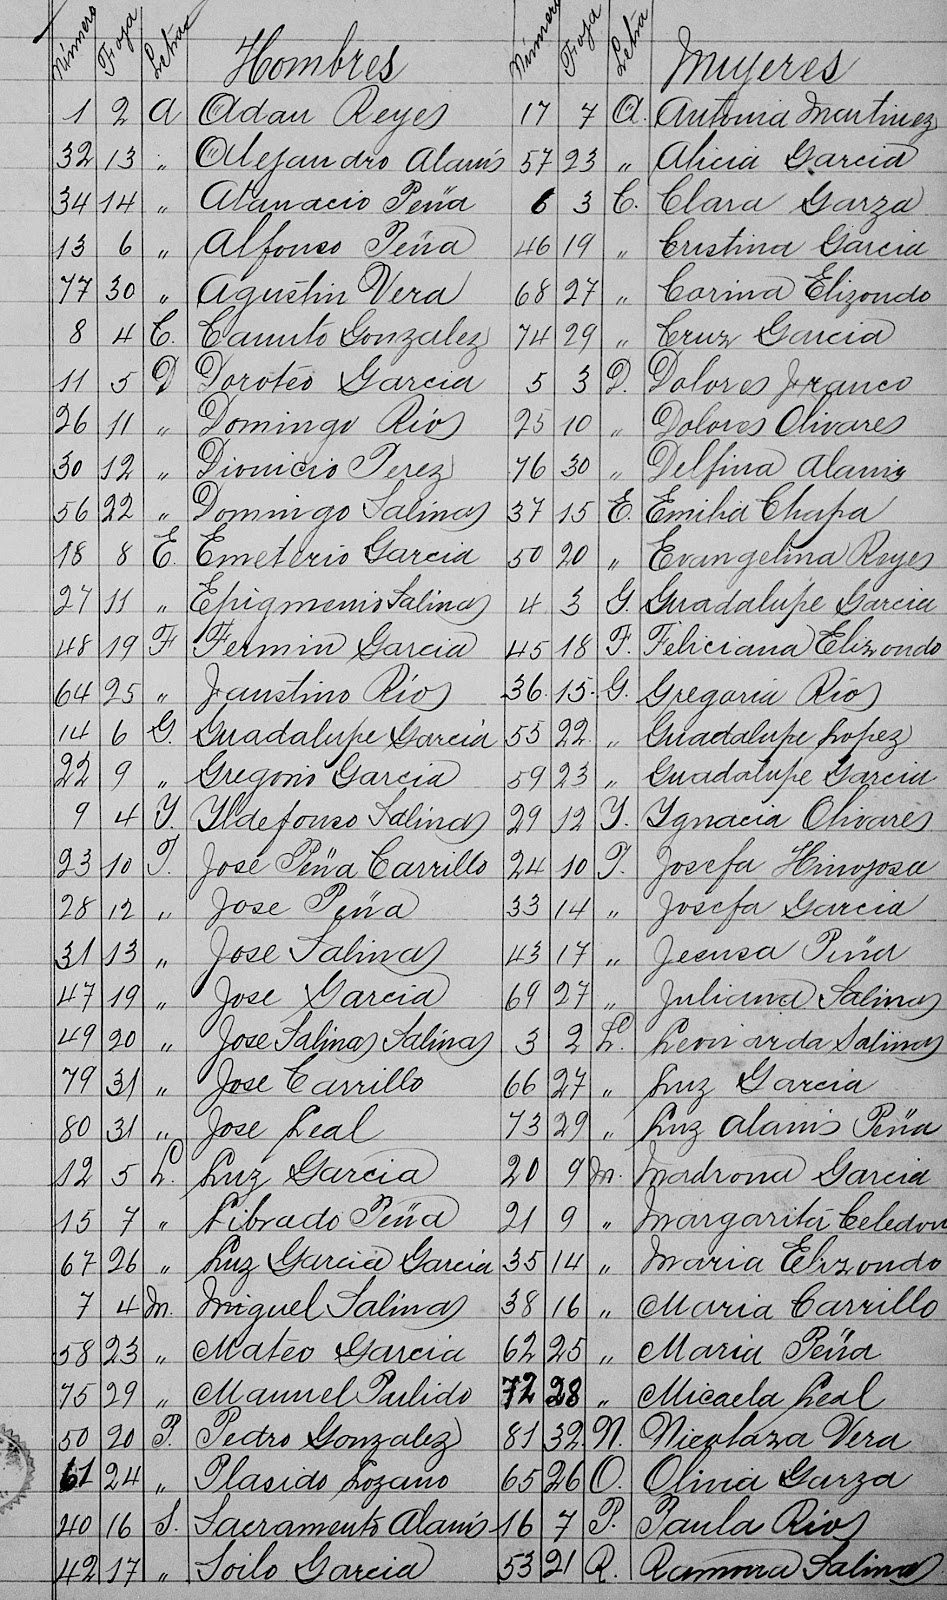 Número Foja Letra Hombres Número Foja Letra Mujeres
1 2 A Adan Reyes 17 7 A. Antonia Martinez
32 13 " Alejandro Alanis 57 23 " Alicia Garcia
34 14 " Atanacio Peña 6 3 C. Clara Garza
13 6 " Alfonso Peña 46 19 " Cristina Garcia
77 30 " Agustin Vera 68 27 " Corina Elizondo
8 4 C. Camilo Gonzalez 74 29 " Cruz Garcia
11 5 D Doroteo Garcia 5 3 D. Dolores Franco
26 11 " Domingo Rios 25 10 " Dolores Olivares
30 12 " Dionicio Perez 76 30 " Delfina Alanis
56 22 " Domingo Salinas 37 15 E. Emilia Chapa
18 8 E. Emeterio Garcia 50 20 " Evangelina Reyes
27 11 " Epigmenio Salinas 4 3 G. Guadalupe Garcia
48 19 F Fermin Garcia 45 18 F. Feliciana Elizondo
64 25 " Faustino Rios 36. 15. G. Gregoria Rios
14 6 G. Guadalupe Garcia 55 22 " Guadalupe Lopez
22 9 " Gregorio Garcia 59 23 " Guadalupe Garcia
9 4 Y. Yldefonso Salinas 29 12 Y. Ygnacia Olivares
23 10 J. José Peña Carrillo 24 10 J. Josefa Hinojosa
28 12 " Jose Peña 33 14 " Josefa Garcia
31 13 " Jose Salinas 43 17 " Jesusa Peña
47 19 " Jose Garcia 69 27 " Juliana Salinas
49 20 " Jose Salinas Salinas 3 2 L. Leonarda Salinas
79 31 " Jose Carrillo 66 27 " Luz Garcia
80 31 " Jose Leal 73 29 " Luz Alanis Peña
12 5 L. Luz Garcia 20 9 M. Madrona Garcia
15 7 " Librado Peña 21 9 " Margarita Celedon
67 26 " Luz Garcia Garcia 35 14 " Maria Elizondo
7 4 M. Miguel Salinas 38 16 " Maria Carrillo
58 23 " Mateo Garcia 62 25 " Maria Peña
75 29 " Manuel Pulido 72 28 " Micaela Leal
50 20 P. Pedro Gonzalez 81 32 N. Nicolaza Vera
61 24 " Plasido Lozano 65 26 O. Olivia Garza
40 16 S. Sacramento Alanis 16 7 P. Paula Rios
42 17 " Soilo Garcia 53 21 R. Ramona Salinas